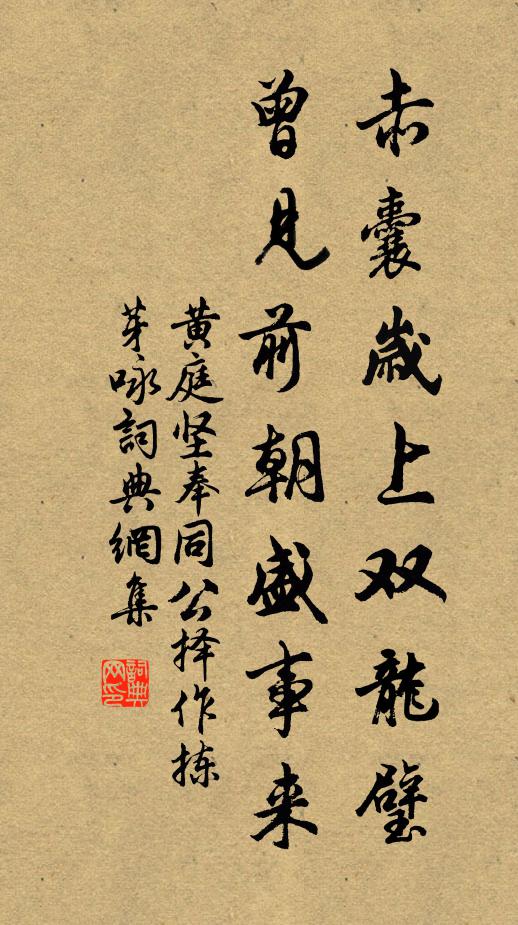 赤囊歲上双龍璧
曾見前朝盛事来
黄庭坚奉同公择作拣
芽咏詞典網集
詞典
网印